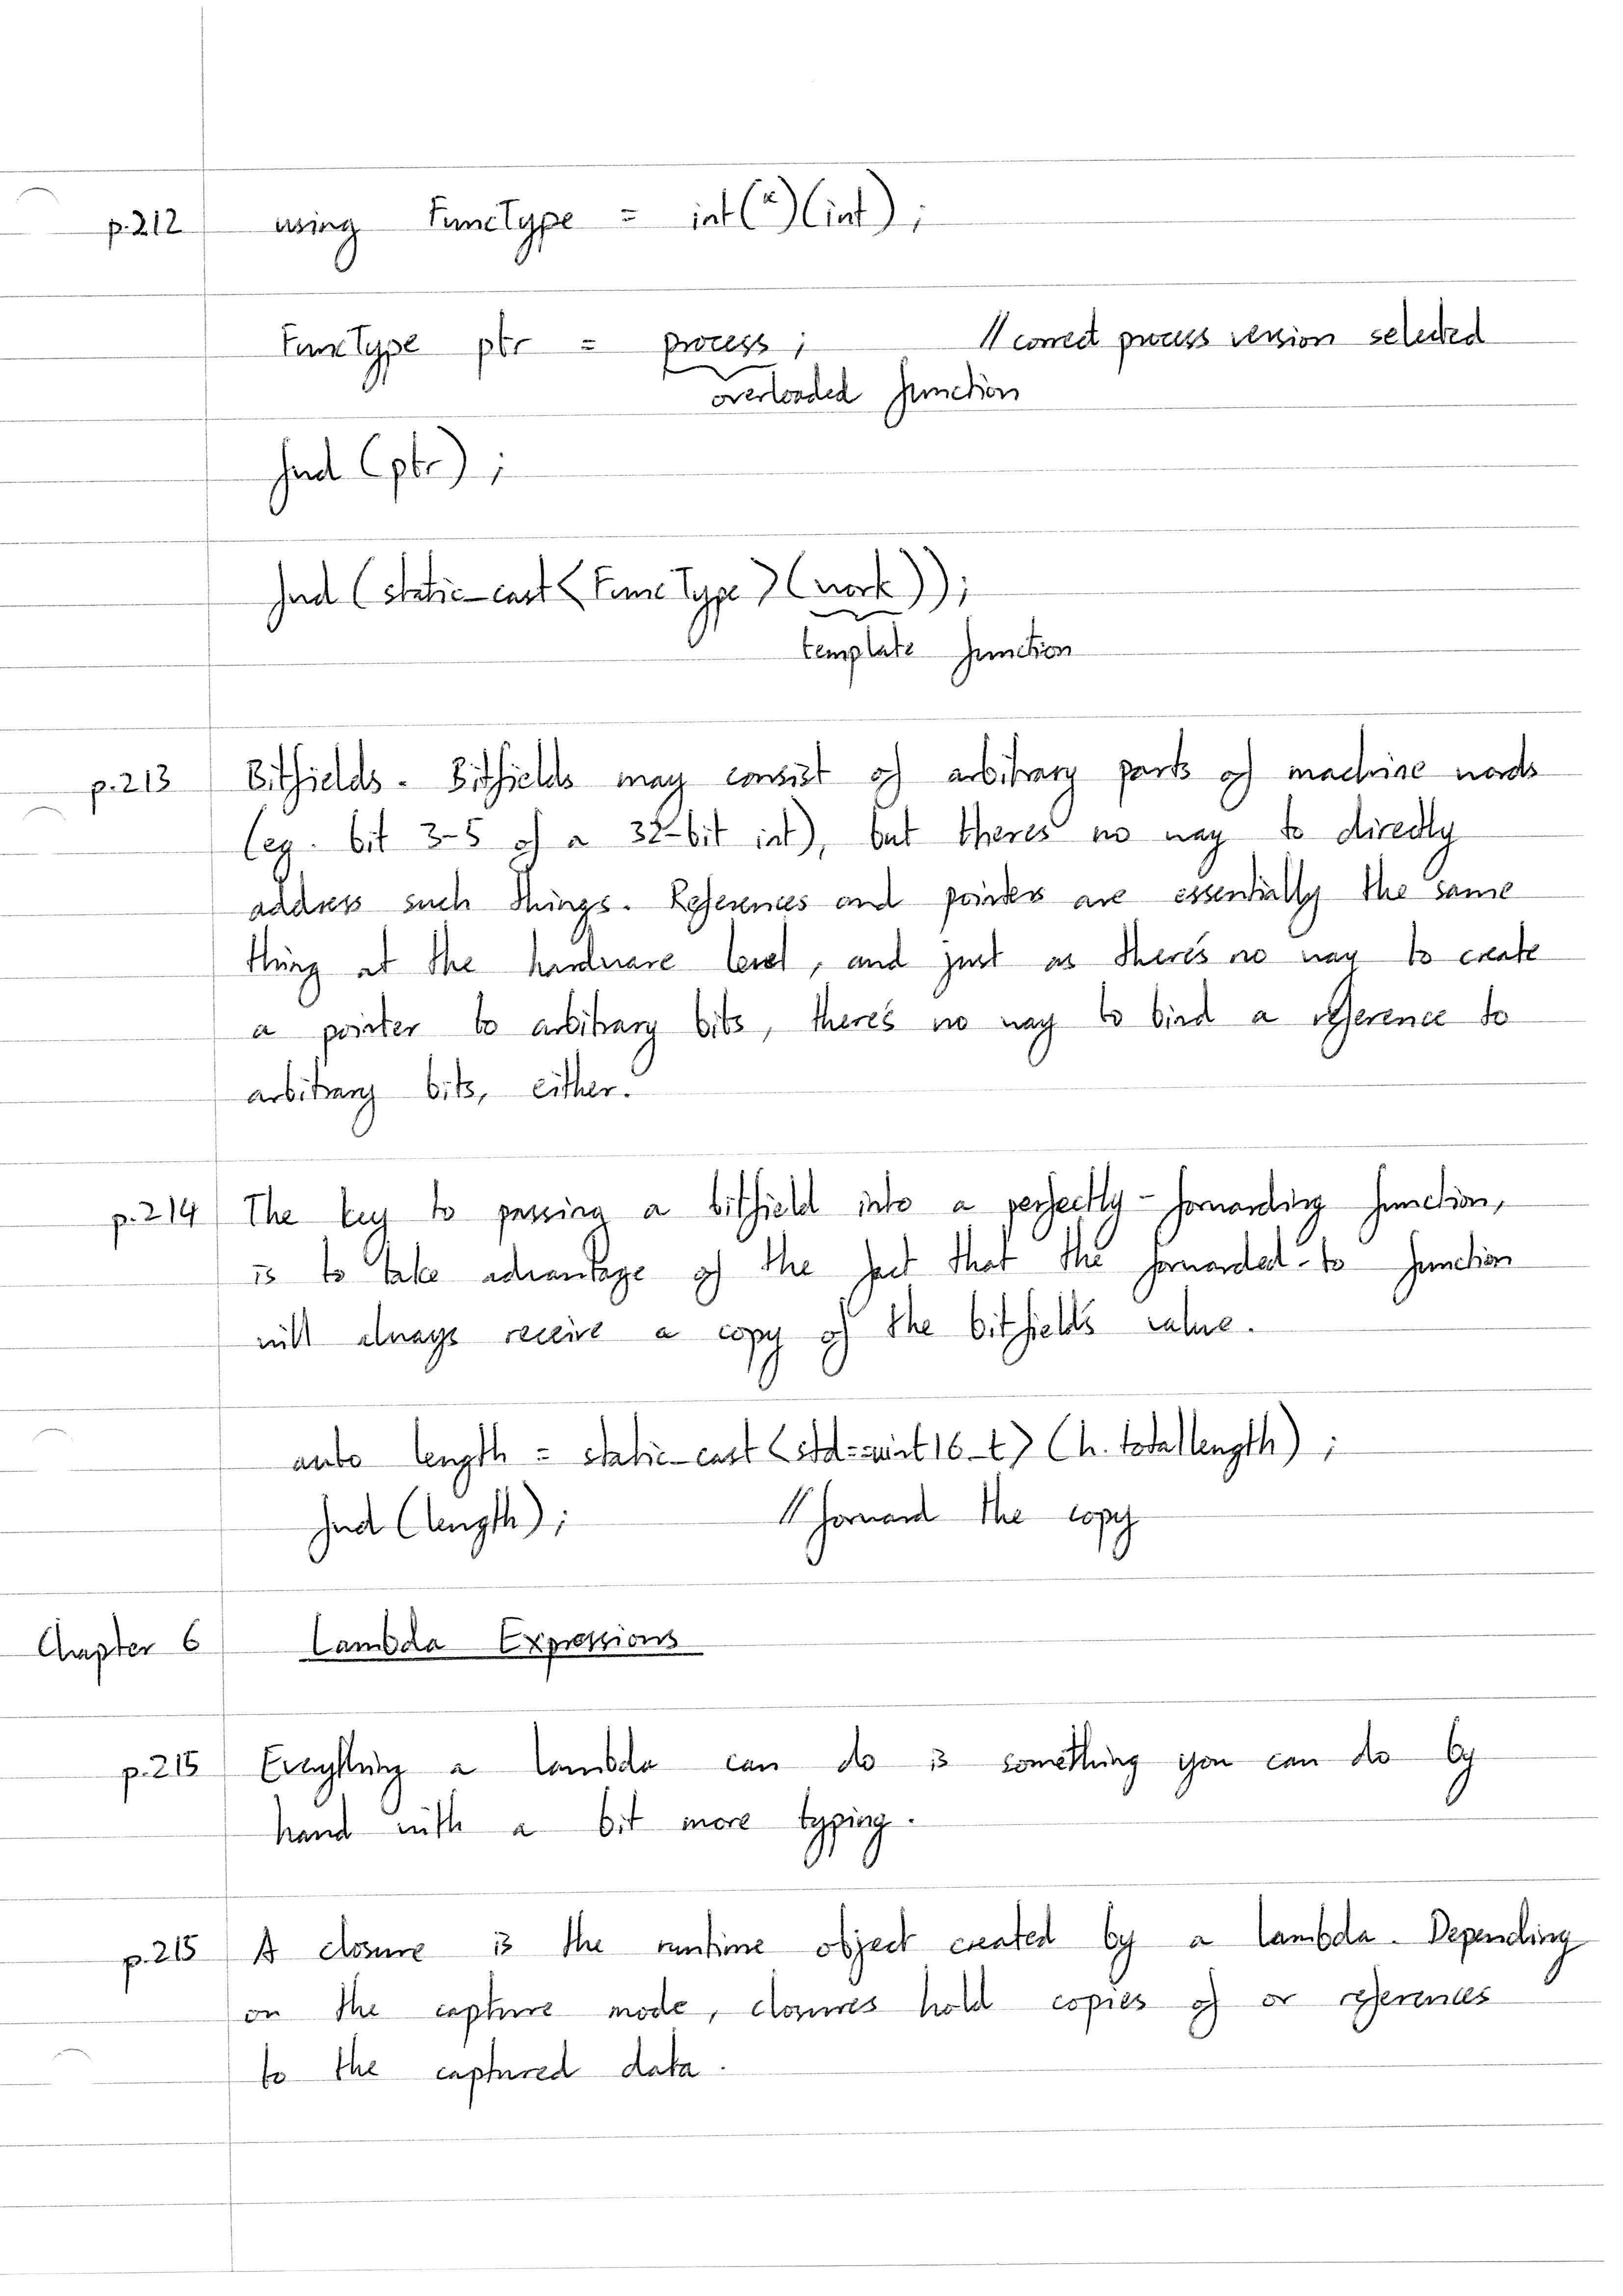 p.212 using FuncType = int(*)(int);
FuncType ptr = process; // correct process version selected
overloaded function
fwd (ptr);
fwd (static_cast<FuncType>(work));
template function
p.213 Bitfields. Bitfields may consist of arbitrary parts of machine words
(eg. bit 3-5 of a 32-bit int), but there's no way to directly
address such things. References and pointers are essentially the same
thing at the hardware level, and just as there's no way to create
a pointer to arbitrary bits, there's no way to bind a reference to
arbitrary bits, either.
p.214 The key to passing a bitfield into a perfectly-forwarding function,
is to take advantage of the fact that the forwarded-to function
will always receive a copy of the bitfield's value.
auto length = static_cast<std::uint16_t>(h.totallength);
fwd (length); // forward the copy
Chapter 6 Lambda Expressions
p.215 Everything a lambda can do is something you can do by
hand with a bit more typing.
p.215 A closure is the runtime object created by a lambda. Depending
on the capture mode, closures hold copies of or references
to the captured data.